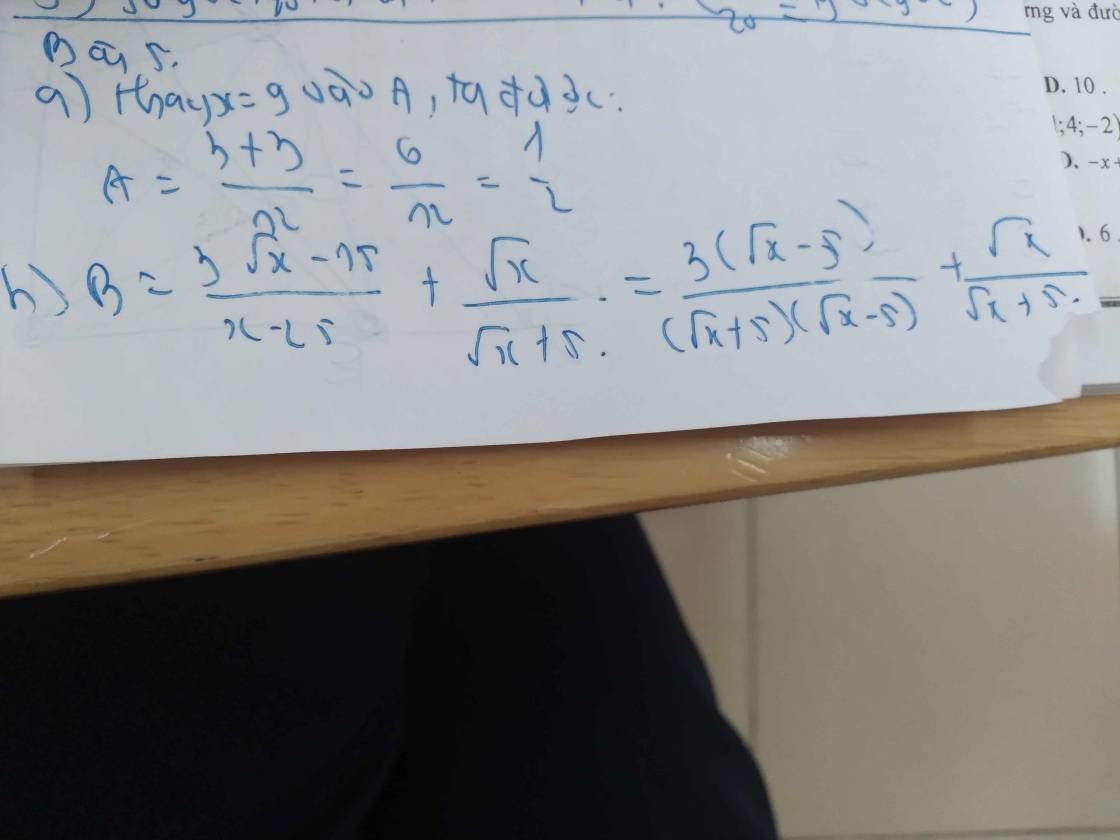 Bài 5.
a) thay x = 9 vào A, ta được:
A = \frac{3+3}{12} = \frac{6}{12} = \frac{1}{2}
b) B = \frac{3\sqrt{x}-15}{x-25} + \frac{\sqrt{x}}{\sqrt{x}+5}. = \frac{3(\sqrt{x}-5)}{(\sqrt{x}+5)(\sqrt{x}-5)} + \frac{\sqrt{x}}{\sqrt{x}+5}.
D. 10 .
;4;-2)
. 6